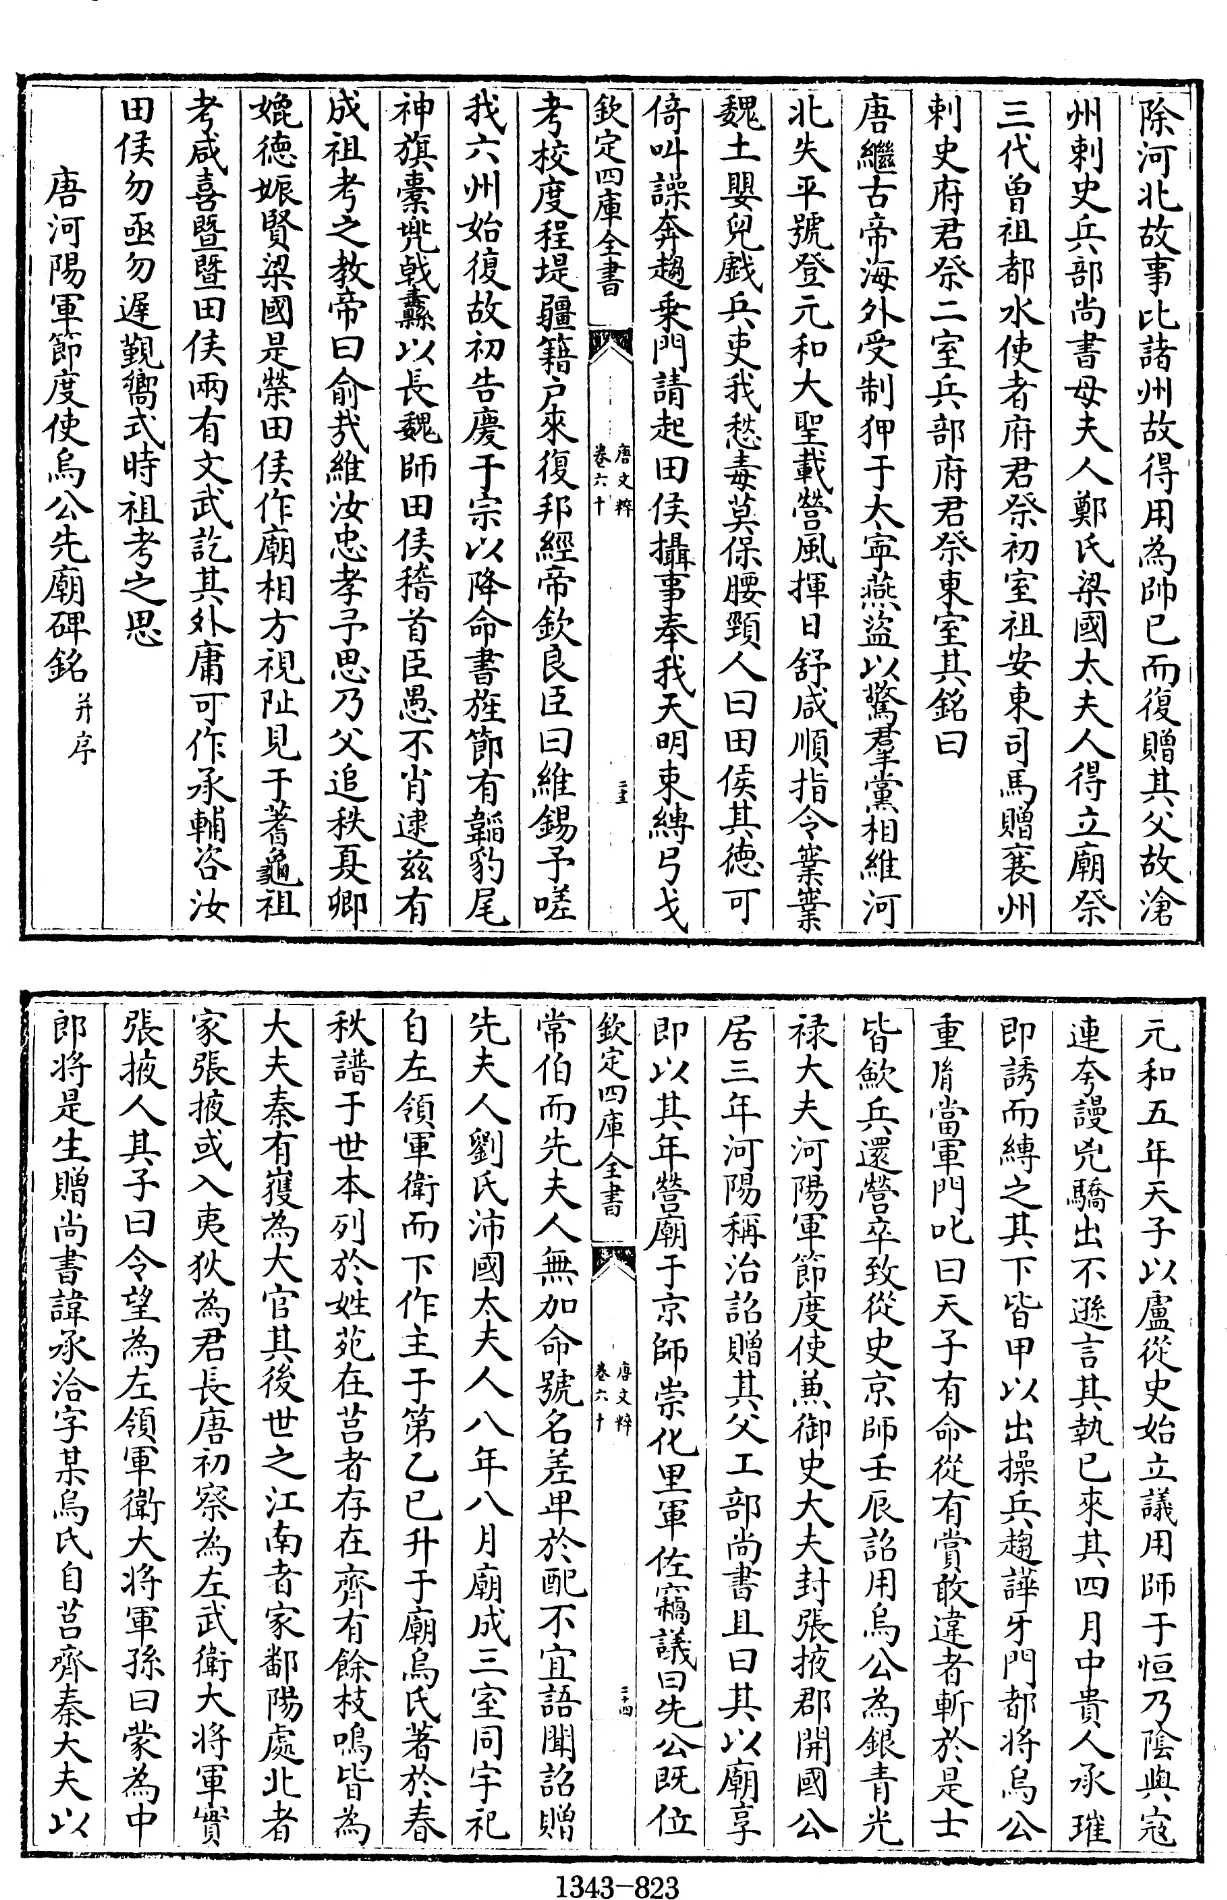 除河北故事比諸州故得用為帥已而復贈其父故滄
州刺史兵部尚書母夫人鄭氏梁國太夫人得立廟祭
三代曾祖都水使者府君祭初室祖安東司馬贈襄州
刺史府君祭二室兵部府君祭東室其銘曰
唐繼古帝海外受制狎于太寧燕盜以驚羣黨相維河
北失平號登元和大聖載營風揮日舒咸順指令業業
魏土嬰兒戲兵吏我愁毒莫保腰頸人曰田侯其德可
倚叫譟奔趨乗門請起田侯攝事奉我天明束縛弓戈
欽定四庫全書
唐文粹
卷六十
三十三
考校度程堤疆籍戶來復邦經帝欽良臣曰維錫予嗟
我六州始復故初告慶于宗以降命書旌節有韜豹尾
神旗櫜兠戟纛以長魏師田侯稽首臣愚不肖逮茲有
成祖考之教帝曰俞㢤維汝忠孝予思乃父追秩夏卿
媲德娠賢梁國是榮田侯作廟相方視阯見于蓍龜祖
考咸喜暨暨田侯兩有文武訖其外庸可作承輔咨汝
田侯勿亟勿遲覲饗式時祖考之思
唐河陽軍節度使烏公先廟碑銘并序
元和五年天子以盧從史始立議用師于恒乃陰與寇
連夸謾兇驕出不遜言其執已來其四月中貴人承璀
即誘而縛之其下皆甲以出操兵趨譁牙門都將烏公
重𦙍當軍門叱曰天子有命從有賞敢違者斬於是士
皆歛兵還營卒致從史京師壬辰詔用烏公為銀青光
禄大夫河陽軍節度使兼御史大夫封張掖郡開國公
居三年河陽稱治詔贈其父工部尚書且曰其以廟享
即以其年營廟于京師崇化里軍佐竊議曰先公既位
欽定四庫全書
唐文粹
卷六十
三十四
常伯而先夫人無加命號名差卑於配不宜語聞詔贈
先夫人劉氏沛國太夫人八年八月廟成三室同宇祀
自左領軍衛而下作主于第乙已升于廟烏氏著於春
秋譜于世本列於姓苑在莒者存在齊有餘枝鳴皆為
大夫秦有獲為大官其後世之江南者家鄱陽處北者
家張掖或入夷狄為君長唐初察為左武衛大將軍實
張掖人其子曰令望為左領軍衛大將軍孫曰蒙為中
郎將是生贈尚書諱承洽字某烏氏自莒齊秦大夫以
1343-823